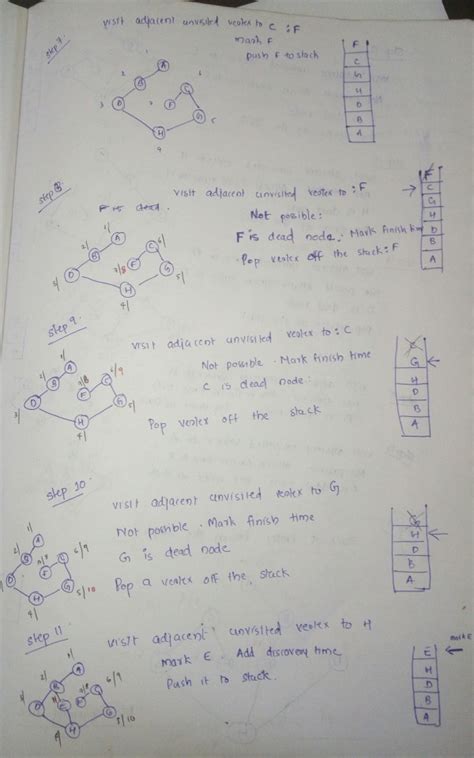 step 7
visit adjacent unvisited vertex to C : F
mark F
push F to stack
F
C
G
H
D
B
A
step 8
visit adjacent unvisited vertex to : F
F is dead.
Not possible:
F is dead node. Mark finish time
Pop vertex off the stack: F
F
C
G
H
D
B
A
step 9
visit adjacent unvisited vertex to : C
Not possible. Mark finish time
C is dead node.
Pop vertex off the stack
C
G
H
D
B
A
step 10
visit adjacent unvisited vertex to G
Not possible. Mark finish time
G is dead node
Pop a vertex off the stack
G
H
D
B
A
step 11
visit adjacent unvisited vertex to H
mark E. Add discovery time
Push it to stack.
mark E
E
H
D
B
A